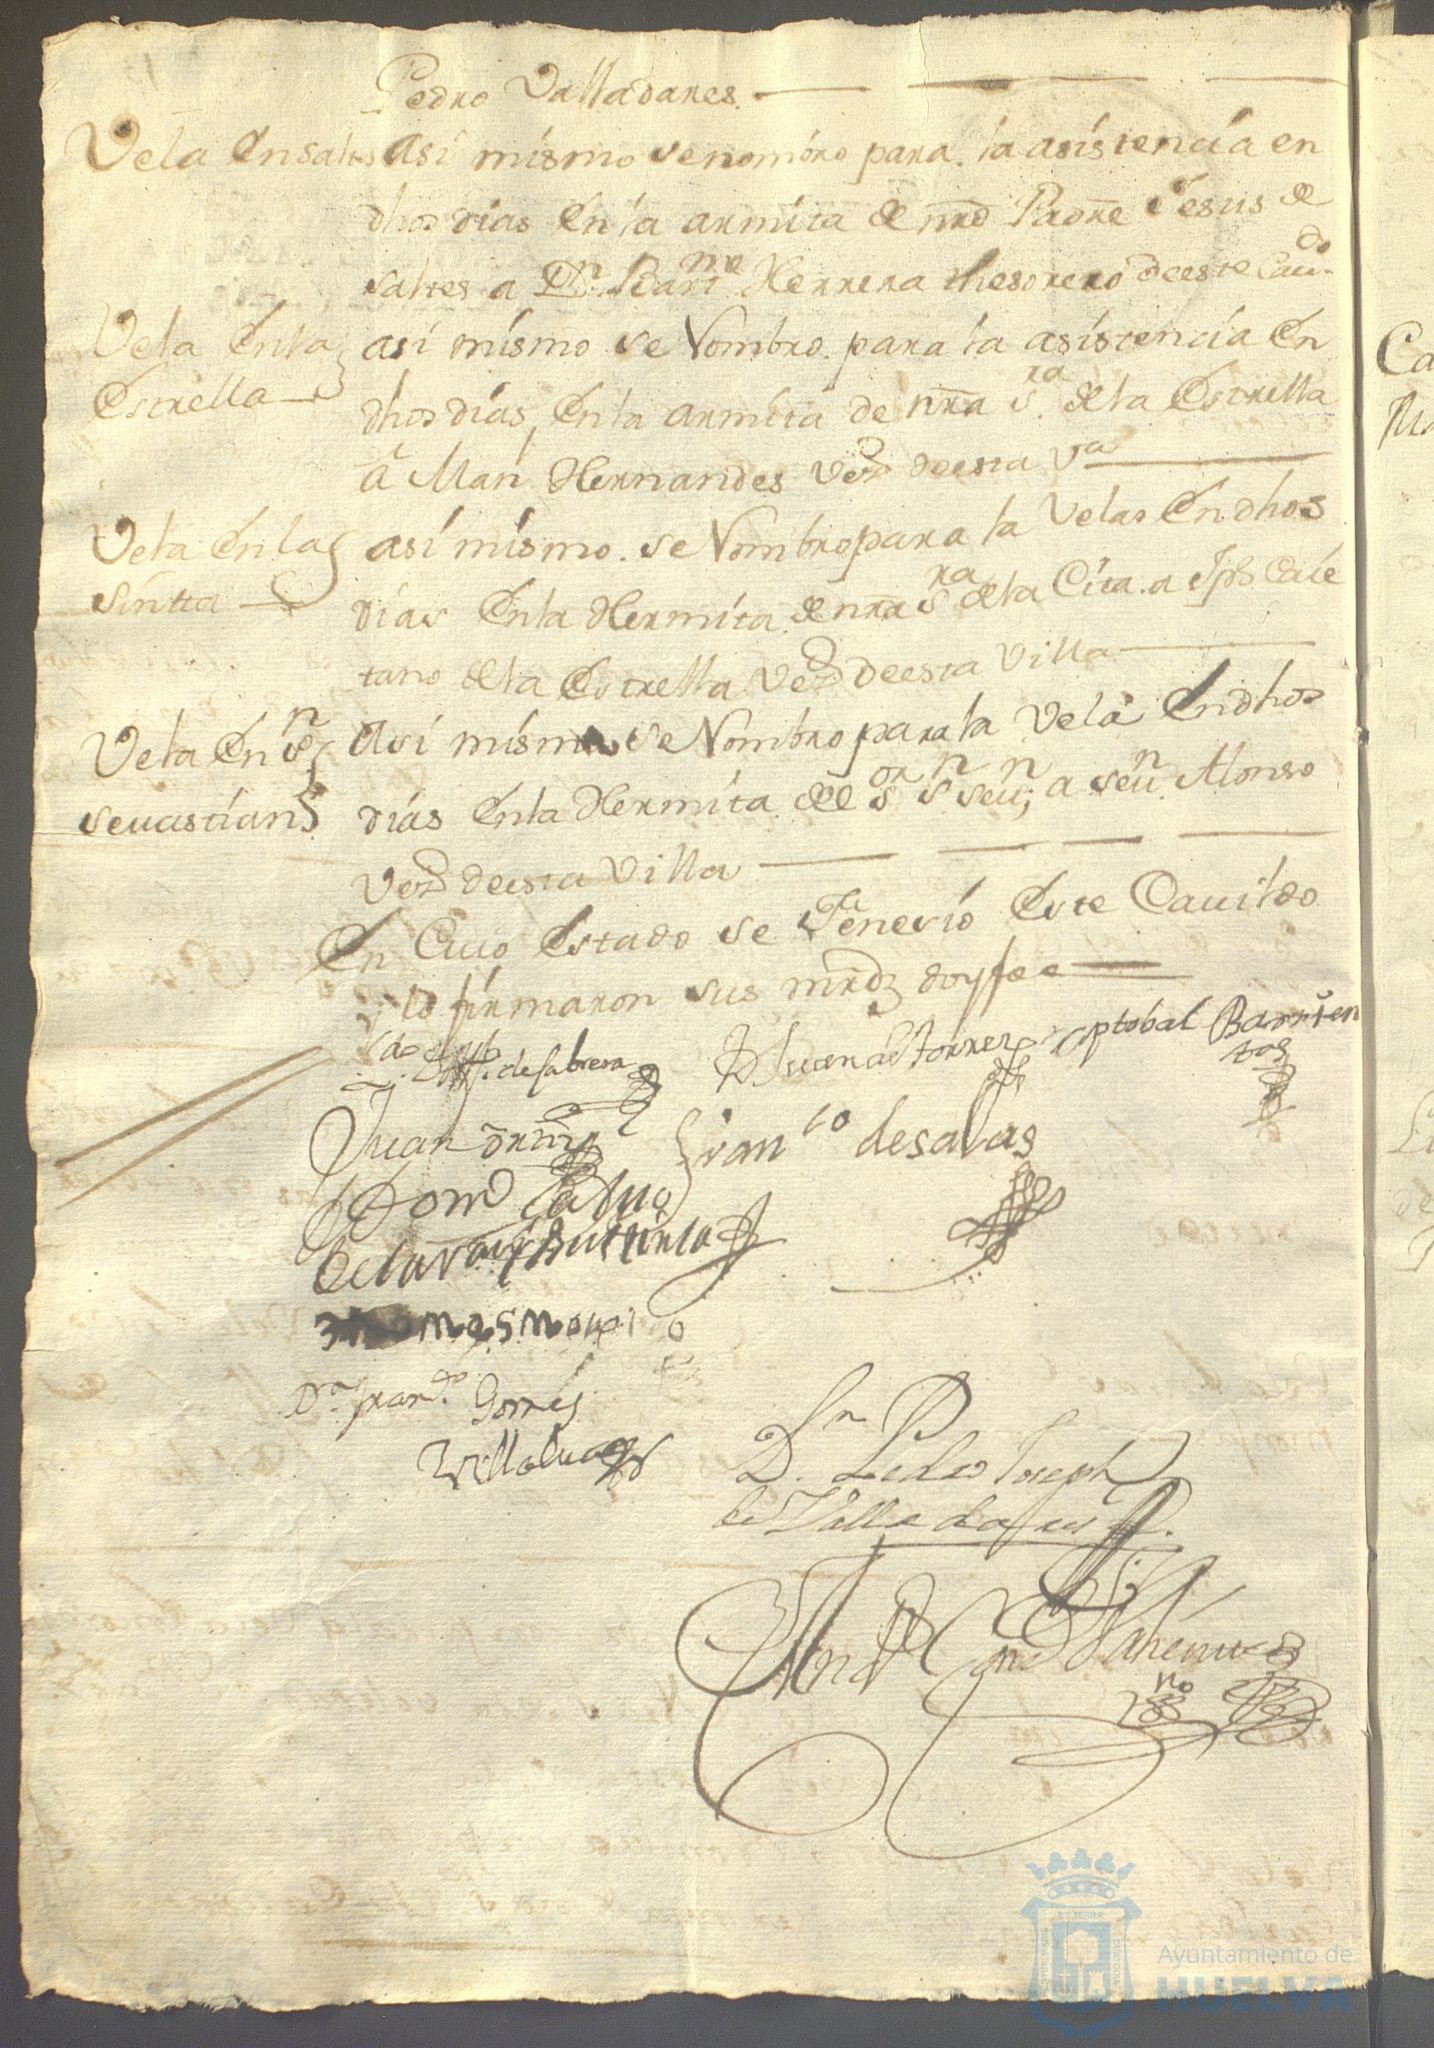 Pedro Valladares.
Vela Ensaltes asi mismo se nombro para. la asistencia en
dhos dias En la armita de nro Padre Jesus de
saltes a Dn. Bartme Herrera thesorero deeste Caudo.
Vela Enla asi mismo se Nombro. para la asistencia En
Estrella dhos dias, En la armita de nra sra. dela Estrella
a Man Hernandes Vezo deesta Va
Vela En la asi mismo. se Nombro para la Velas En dhos
sintta dias En la Hermita. de nra sra dela Cita. a Jph Caie
tano dela Estrella Vezo deesta Villa
Vela En sn Asi mismo se Nombro para la Vela En dhos
sevastian dias Enla Hermita del sor sn sevn; a sevn. Alonso
Vezo deesta Villa
En Cuio Estado se Feneсio Este Cauildo
y lo firmaron sus mrdz doyfee
de Cabrera D Juan de Torres Xptobal Barrien
tos
Juan Franco desalas
Domo
Octavio
Dn. Franco. Torres
Villalua
Dn. Pedro Joseph
de Valladares
And
no
Ca
Ayuntamiento de
HUELVA